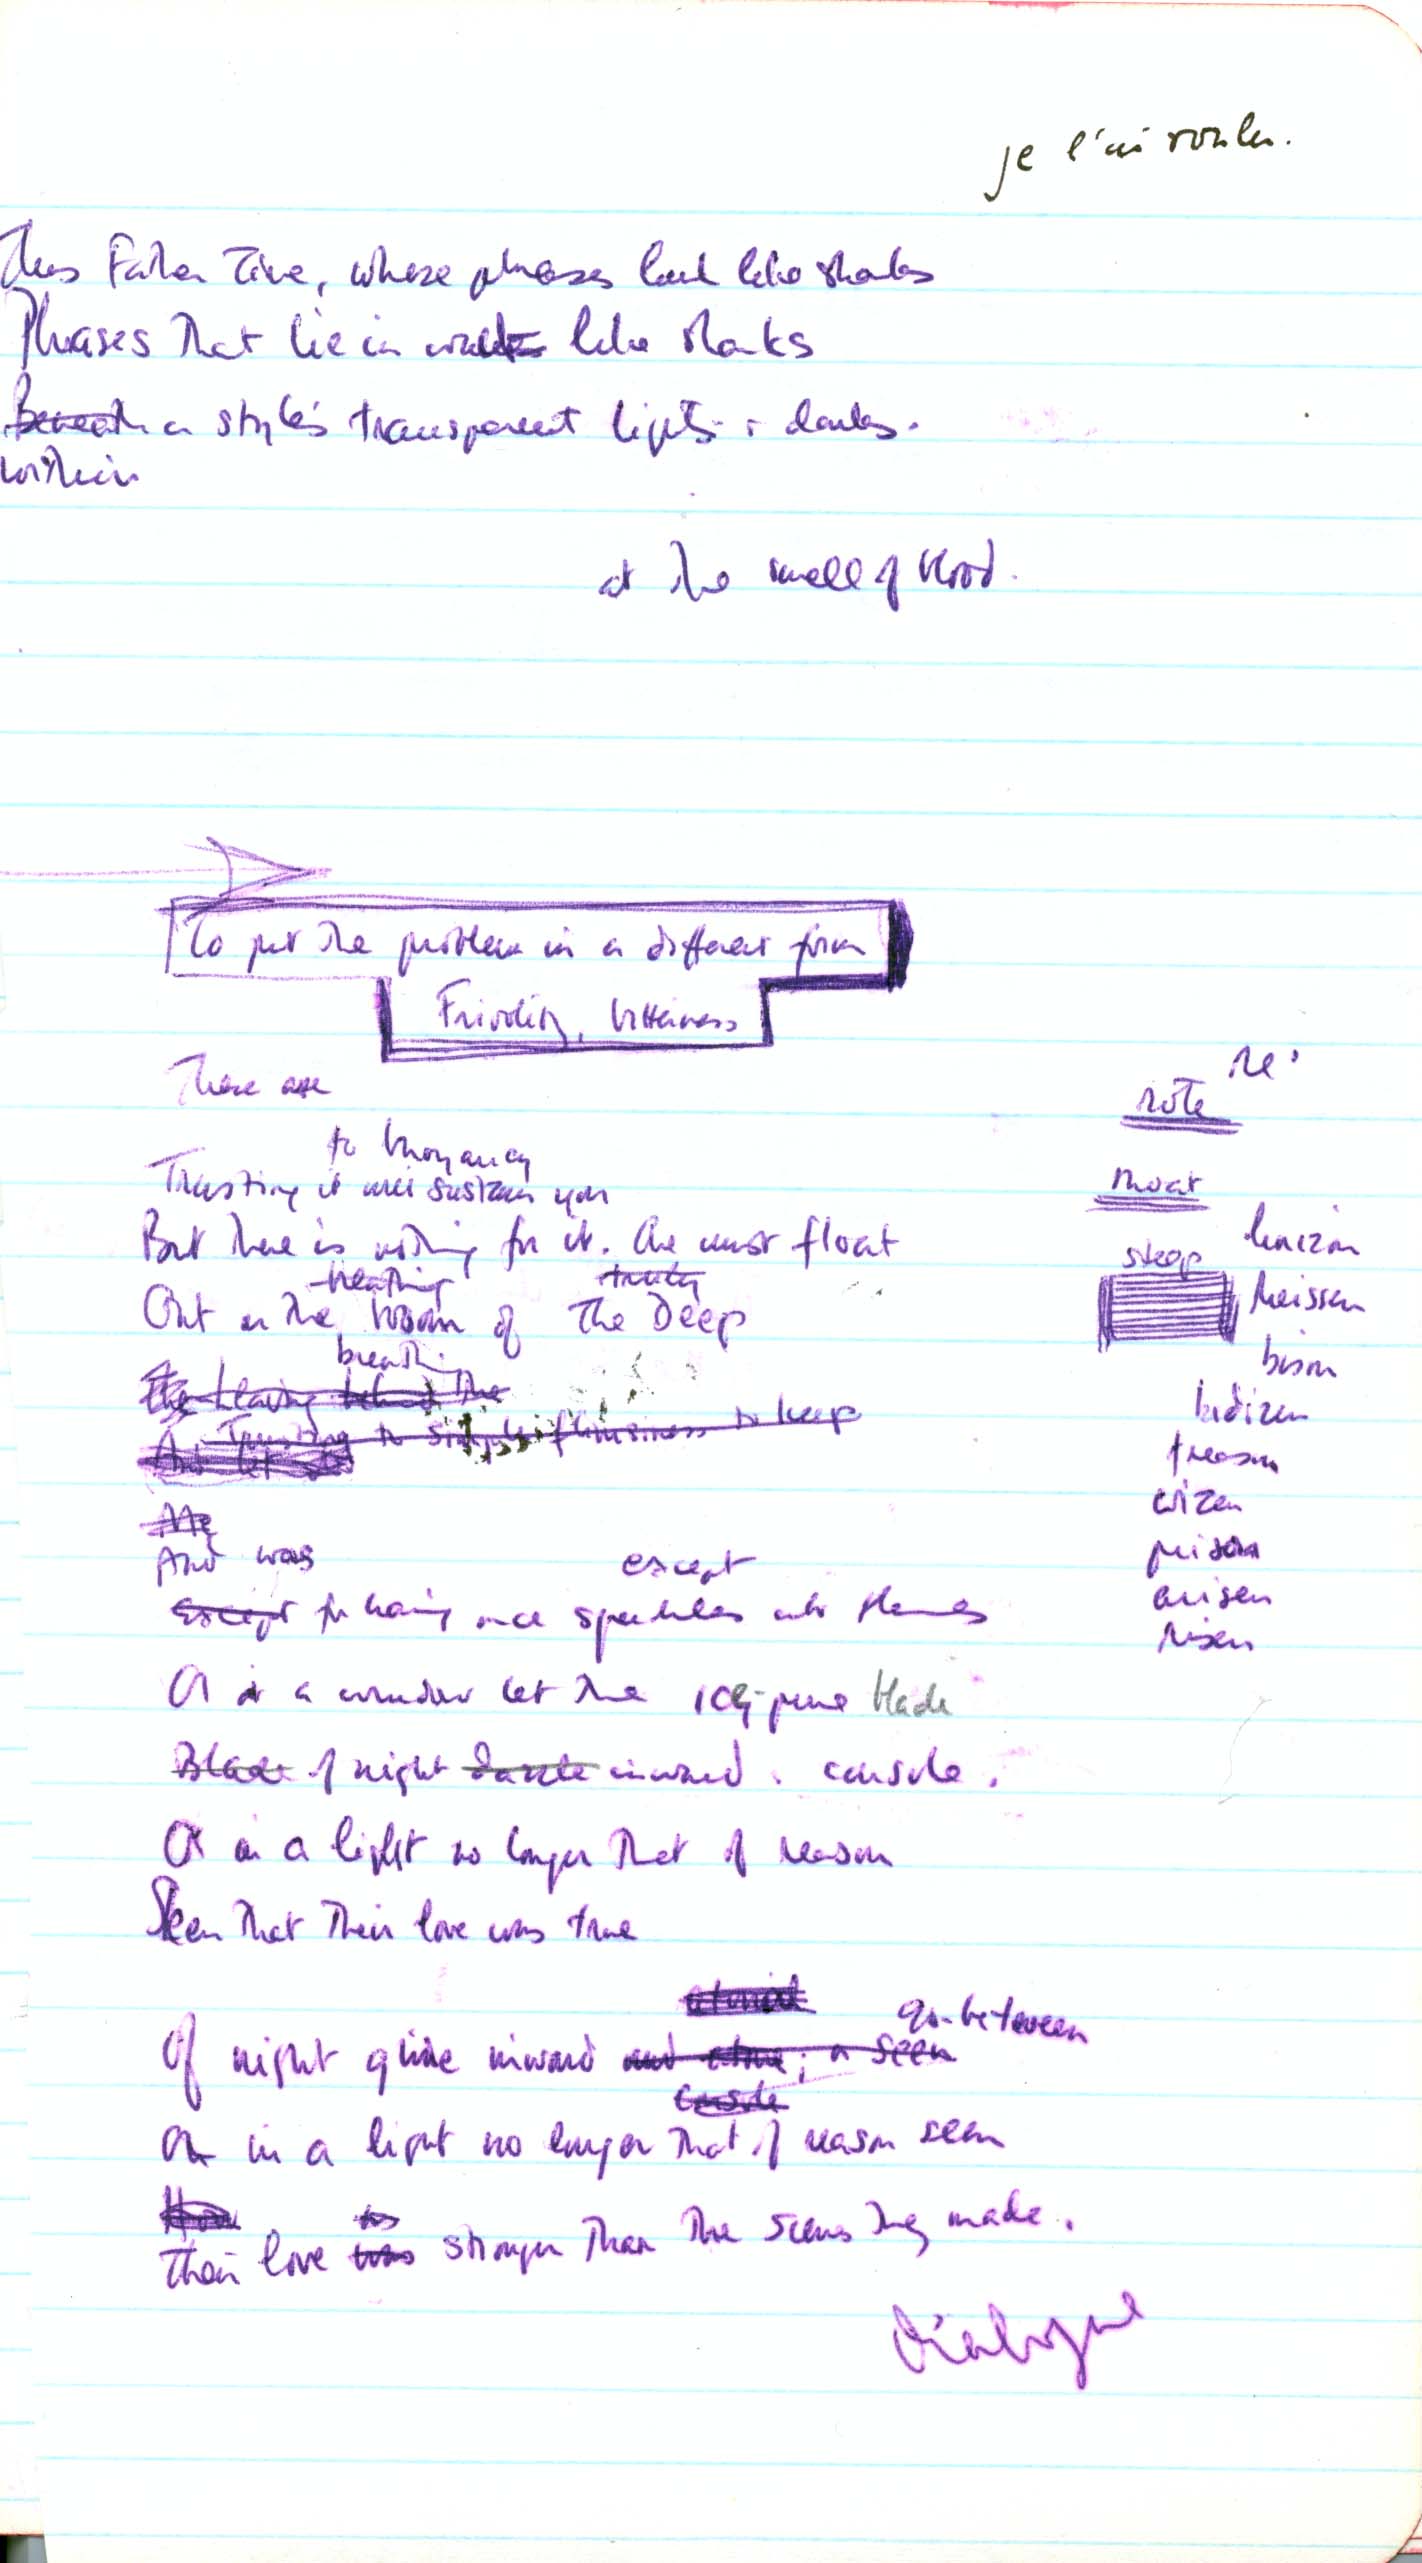 je l'ai voulu.
Thus Father Time, whose phrases lurk like sharks
Phrases that lie in like sharks
Beneath a style's transparent lights + darks.
within
at the smell of blood.
To put the problem in a different form
Frivolity, bitterness
There are
to buoyancy
Trusting it will sustain you
But there is nothing for it. One must float
breathing
Out on the of The Deep
breathing
leaving behind the
Trusting to simple flimsiness to keep
And let
Me
And was except
Except for having once into
Or in a window let the icy-pure blade
Blade of night dazzle inward. console.
Or in a light no longer that of reason
Seen that their love was true
Of night glide inward and ; a seen go-between
console
Or in a light no longer that of reason seen
How
Their love was stronger than the scenes they made.
Dialogue
the
note
throat
steep
horizon
Meissen
bison
bedizen
treason
wizen
prison
arisen
risen